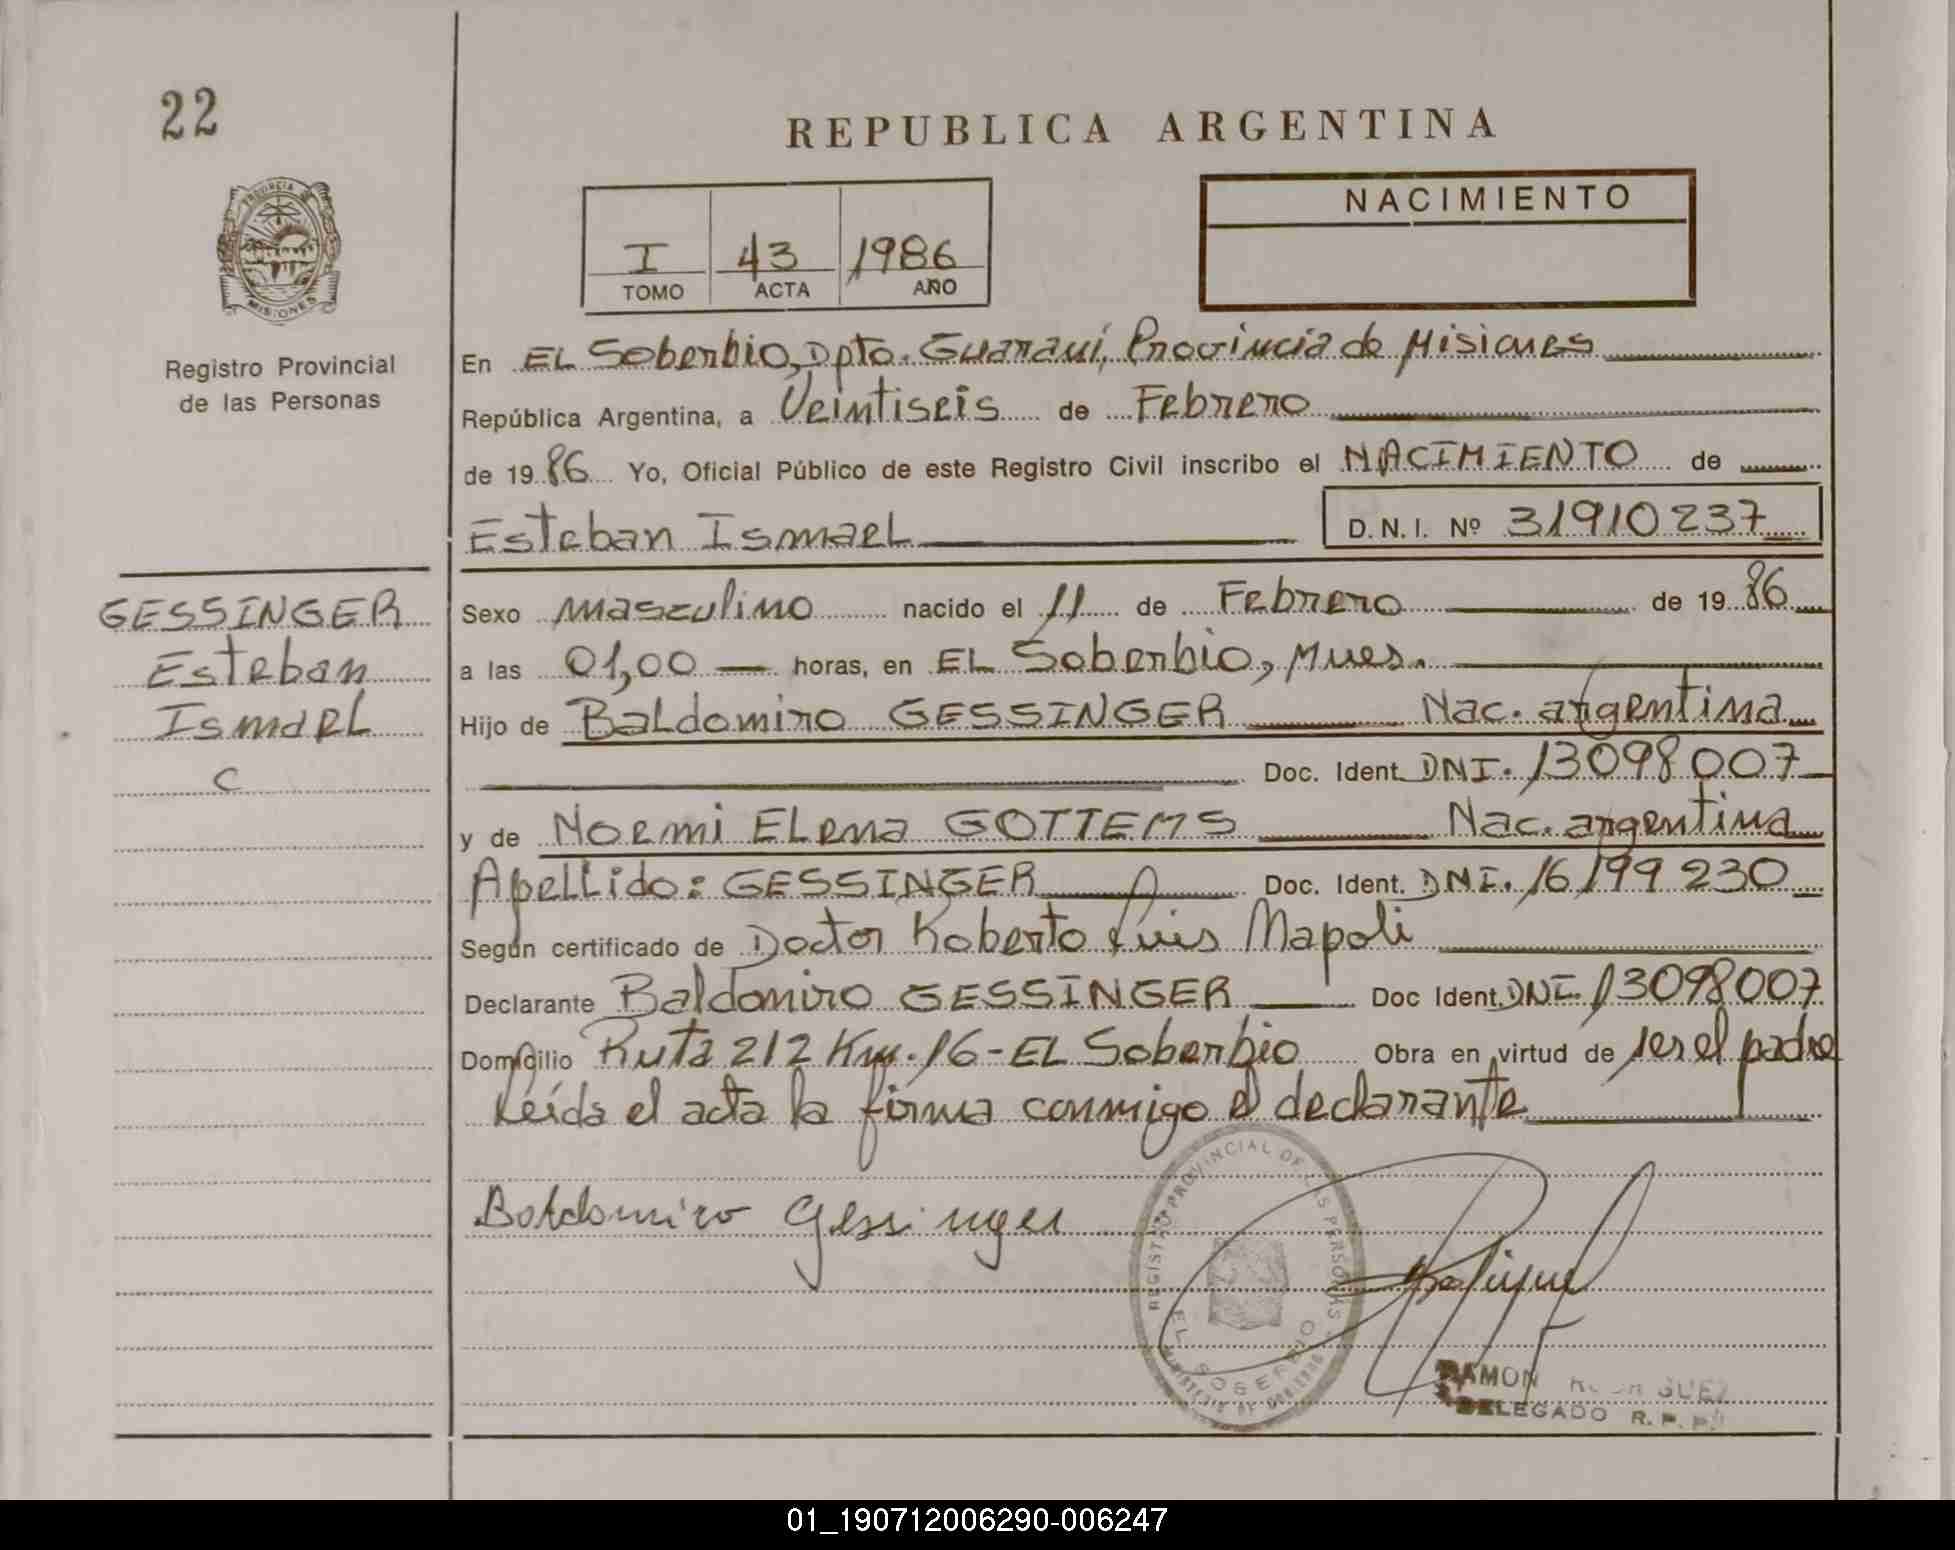 22
REPUBLICA ARGENTINA
PROVINCIA
MISIONES
Registro Provincial
de las Personas
I 43 1986
TOMO ACTA AÑO
NACIMIENTO
En EL Soberbio, Dpto. Guaraní, Provincia de Misiones
República Argentina, a Veintiseis de Febrero
de 1986 Yo, Oficial Público de este Registro Civil inscribo el NACIMIENTO de
Esteban Ismael D.N.I. Nº 31910237
GESSINGER
Esteban
Ismael
C
Sexo masculino nacido el 11 de Febrero de 1986
a las 01,00 horas, en EL Soberbio, Mnes.
Hijo de Baldomiro GESSINGER Nac. argentina
Doc. Ident. DNI. 13098007
y de Noemi Elena GOTTEMS Nac. argentina
Apellido: GESSINGER Doc. Ident. DNI. 16199230
Según certificado de Doctor Roberto Luis Napoli
Declarante Baldomiro GESSINGER Doc Ident. DNI. 13098007
Domicilio Ruta 212 Km. 16 - EL Soberbio Obra en virtud de ser el padre
Leída el acta la firma conmigo el declarante
Baldomiro Gessinger
REGISTRO PROVINCIAL DE LAS PERSONAS
EL SOBERBIO
MINISTERIO DE GOBIERNO
RAMON RODRIGUEZ
DELEGADO R. P. P.
01_190712006290-006247